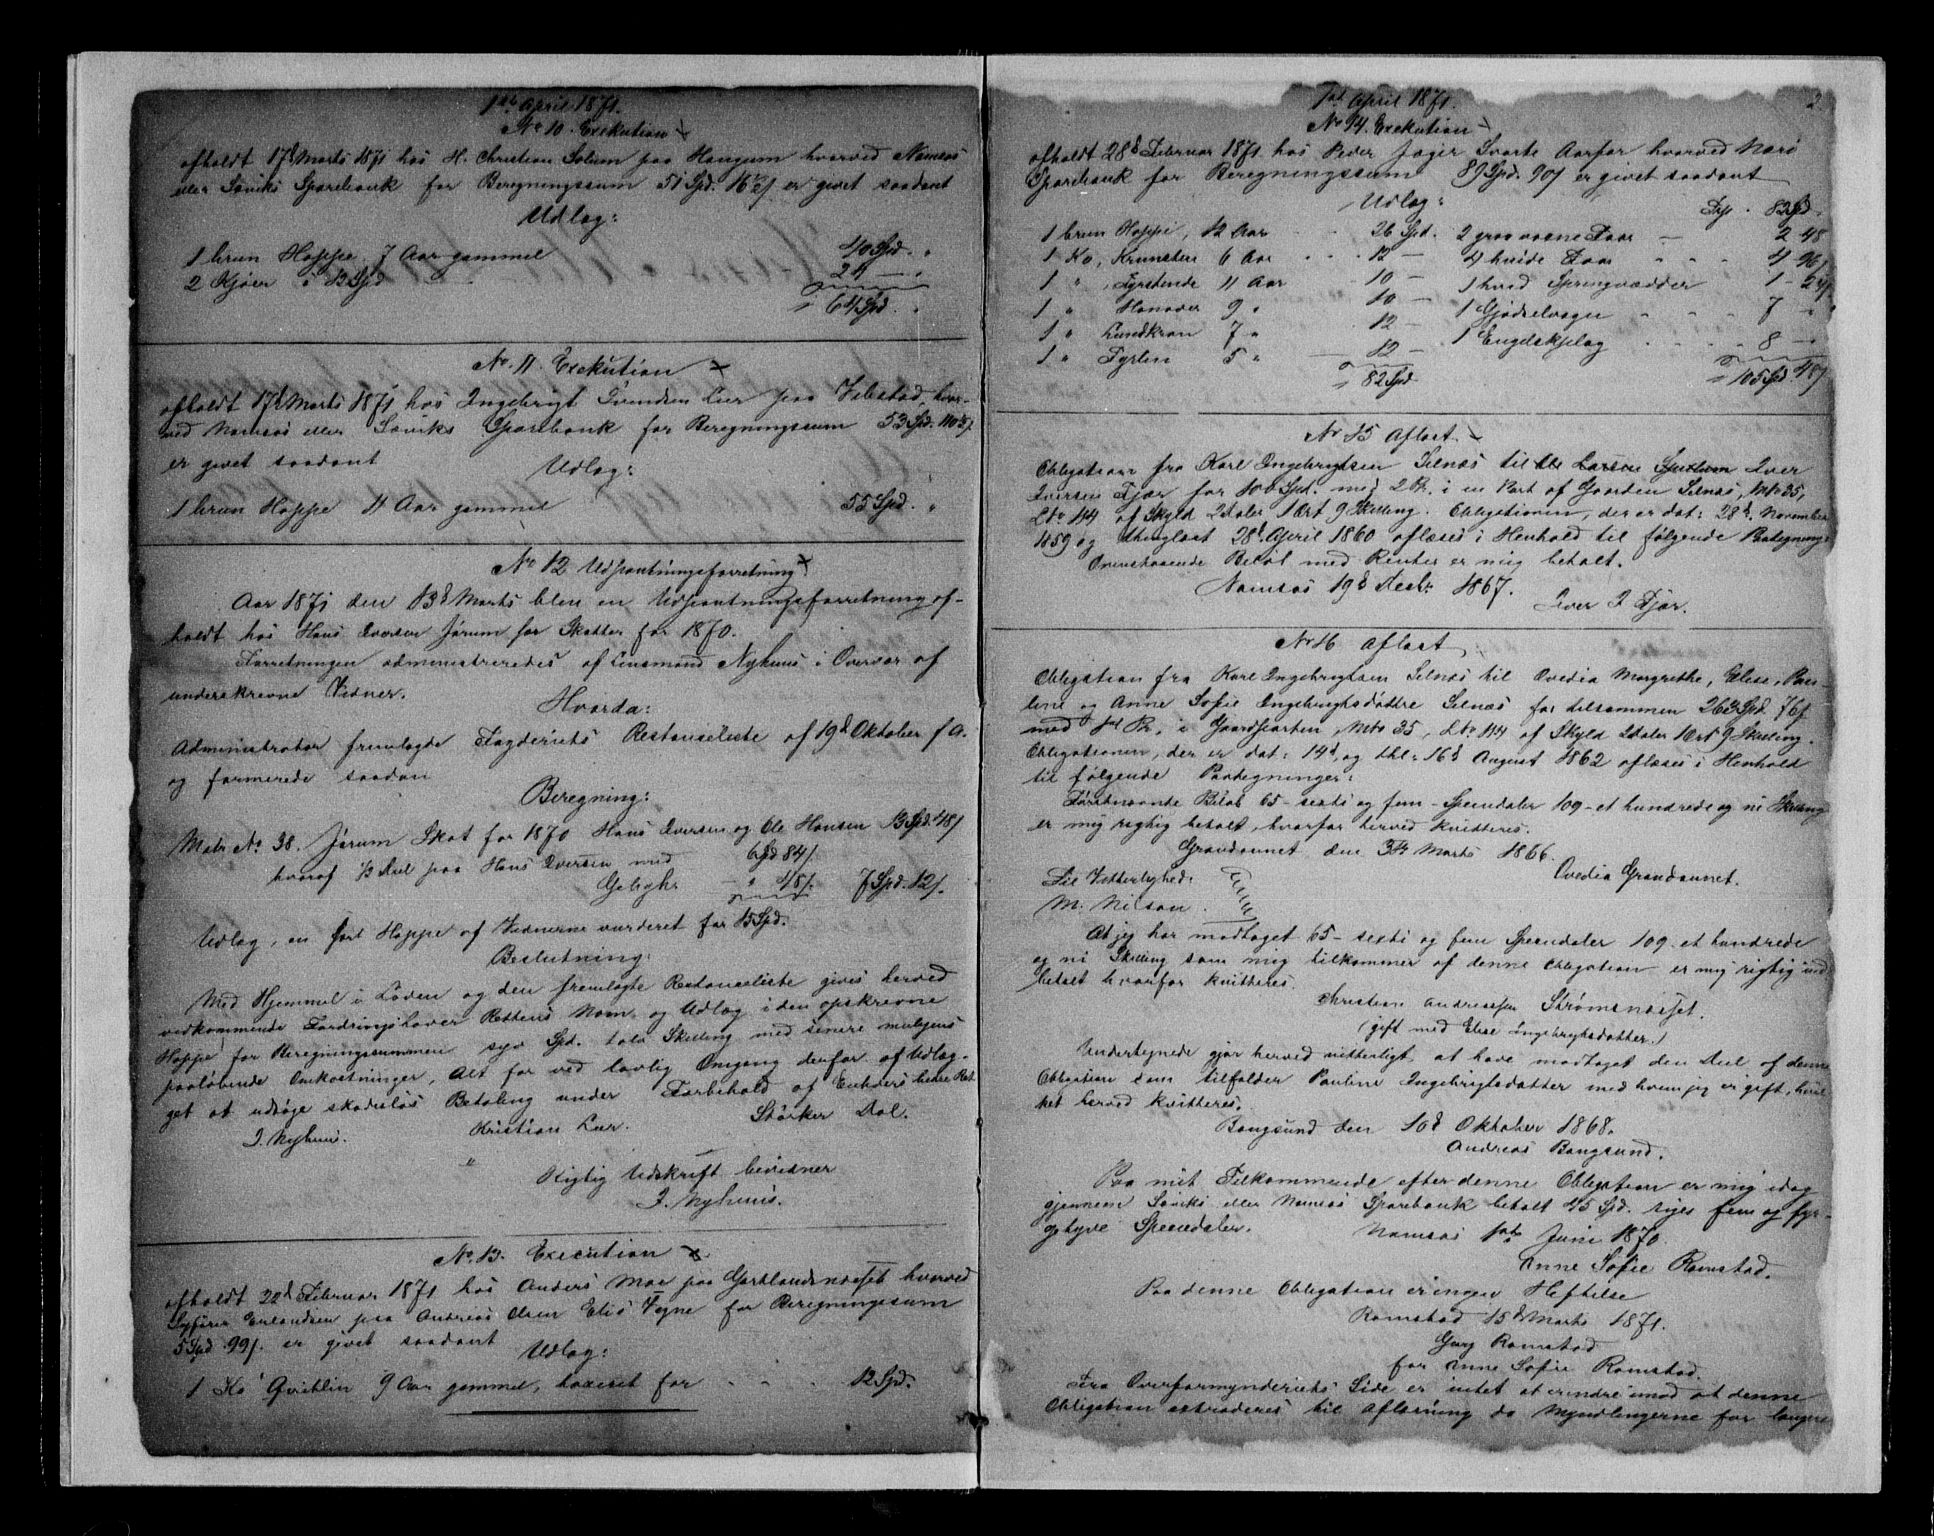 1ste April 1871.
No 10. Exekution
afholdt 17d Marts 1871 hos H. Christian Solum paa Haugum hvorved Namsos
eller Søviks Sparebank for Beregningssum 51 Spd. 16½ s er givet saadant
Udlæg:
1 brun Hoppe 7 Aar gammel 40 Spd. "
2 Kjøer à 12 Spd 24 — "
64 Spd. "
No. 11. Exekution
afholdt 17d Marts 1871 hos Ingebrigt Svendsen Lier paa Vibstad, hvor-
ved Namsos eller Søviks Sparebank for Beregningssum 53 Spd.
er givet saadant
Udlæg:
1 brun Hoppe 11 Aar gammel 55 Spd. "
No 12 Udpantningsforretning
Aar 1871 den 13d Marts blev en Udpantningsforretning af-
holdt hos Hans Iversen Jørum for Skatter for 1870.
Forretningen administreredes af Lensmand Nyhuus i Overvær af
underskrevne Vidner.
Hvorda:
Administrator fremlagde Fogderiets Restanseliste af 19d Oktober f A.
og formerede saadan
Beregning:
Matr No. 38. Jørum Skat for 1870 Hans Iversen og Ole Hansen 13 Spd. 48 s
hvoraf ½ Del paa Hans Iversen med 6 Spd 84 s.
Gebyhr — " 48 s. 7 Spd. 12 s.
Udlæg, en Hoppe af Vidnerne vurderet for 15 Spd.
Beslutning:
Med Hjemmel i Loven og den fremlagte Restanseliste gives herved
vedkommende Fordringshaver Rettens Navn og Udlæg i den opskrevne
Hoppe for Beregningssummen syv Spd. tolv Skilling med senere muligens
paaløbende Omkostninger, Alt for ved lovlig Omgang derfor af Udlæg-
get at udsøge skadesløs Betaling under Forbehold af Enhvers bedre Ret.
J. Nyhuus. Kristian Lier. Størker Dal.
"
Rigtig Udskrift bevidner
J. Nyhuus.
No. 13. Execution
afholdt 22d Februar 1871 hos Anders Moe paa Gartlandsnæsset hvorved
Erlandsen paa Andreas Olsen Elis Vegne for Beregningssum
5 Spd 99 s. er givet saadant
Udlæg:
1 Ko Qvitlin 9 Aar gammel, taxeret for 12 Spd.
1ste April 1871. 2
No 14. Exekution
afholdt 28d Februar 1871 hos Peder Jæger Svarte Aarfor hvorved Nærø
Sparebank for Beregningssum 89 Spd. 90 s er givet saadant
Udlæg:
Trp. 82 Spd.
1 brun Hoppe, 12 Aar 26 Spd. 2 graavarne Faar — 2 48
1 Ko, Krunstin 6 Aar 12 — 4 hvide Faar 4 96
1 " Fyrstinde 11 Aar 10 — 1 hvid Springvædder 1 – 24
1 " Hanover 9 " 10 — 1 Gjødselvogn 7 "
1 " Lundkran 7 " 12 — 1 Engelskplog 8 —
1 " Fyrlin 5 " 12 —
82 Spd. 105 Spd 48 s
No 15 Aflæst
Obligation fra Karl Ingebrigtsen Selnæs til Ole Larsen Iver
Iversen Fjær for 100 Spd. med 2 Pr. i en Part af Gaarden Selnæs, Mtr 35,
Lbr 114 af Skyld 2 daler 1 Ort 9 Skilling. Obligationen, der er dat: 28d November
1859 og thinglæst 28d April 1860 aflæses i Henhold til følgende Paategning:
Ovenstaaende Beløb med Renter er mig betalt.
Namsos 19d Decbr. 1867.
Iver I Fjær.
No 16 Aflæst
Obligation fra Karl Ingebrigtsen Selnæs til Ovedia Margrethe, Elise, Pau-
line og Anne Sofie Ingebrigtsdøttre Selnæs for tilsammen 263 Spd. 76 s
med 1ste Pr. i Gaardparten, Mtr 35, Lbr 114 af Skyld 2 daler 1 Ort 9 Skilling.
Obligationen, der er dat: 14d, og thl: 16d August 1862 aflæses i Henhold
til følgende Paategninger:
Førstnævnte Beløb 65 – sexti og fem – Speciedaler 109 – et hundrede og ni Skilling
er mig rigtig betalt, hvorfor herved kvitteres.
Grandaunet den 3die Marts 1866.
Ovedia Grandaunet.
Til Vitterlighed:
M. Nilsen.
At jeg har modtaget 65 – sexti og fem Speciedaler 109 et hundrede
og ni Skilling som mig tilkommer af denne Obligation er mig rigtig ind
betalt hvorfor kvitteres.
Christian Andreassen Strømsnæsset.
(gift med Elise Ingebrigtsdatter)
Undertegnede gjør herved vitterligt, at have modtaget den Deel af denne
Obligation som tilfalder Pauline Ingebrigtsdatter med hvem jeg er gift, hvil
ket herved kvitteres.
Bangsund den 10d Oktober 1868.
Andreas Bangsund.
Paa mit Tilkommende efter denne Obligation er mig idag
gjennem Søviks eller Namsos Sparebank betalt 45 Spd. siges fem og fyr-
getyve Speciedaler.
Namsos 1ste Juni 1870.
Anne Sofie Ramstad.
Paa denne Obligation er ingen Heftelse
Ramstad 15d Marts 1871.
Ramstad
for Anne Sofie Ramstad.
Fra Overformynderiets Side er intet at erindre imod at denne
Obligation extraderes til Aflæsning da Myndlingerne for længere